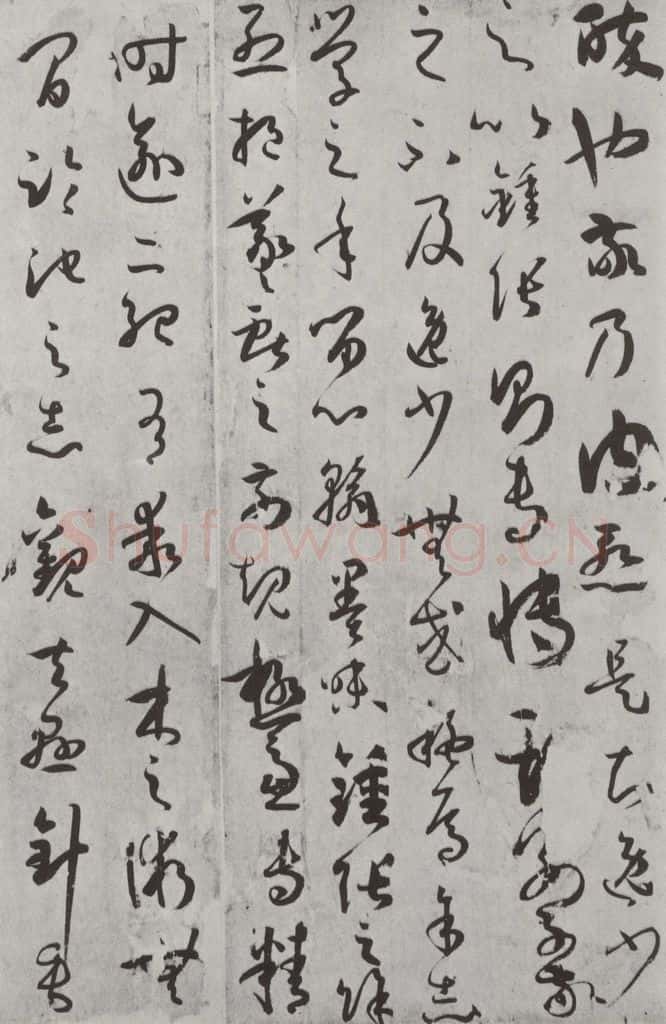 醉也敬乃內慙是知逸少
之比鍾張則專博斯別子敬
之不及逸少無或疑焉余志
學之年留心翰墨味鍾張之餘
烈挹羲獻之前規極慮專精
時逾二紀有乖入木之術無
間臨池之志觀夫懸針垂
Shufawang.CN